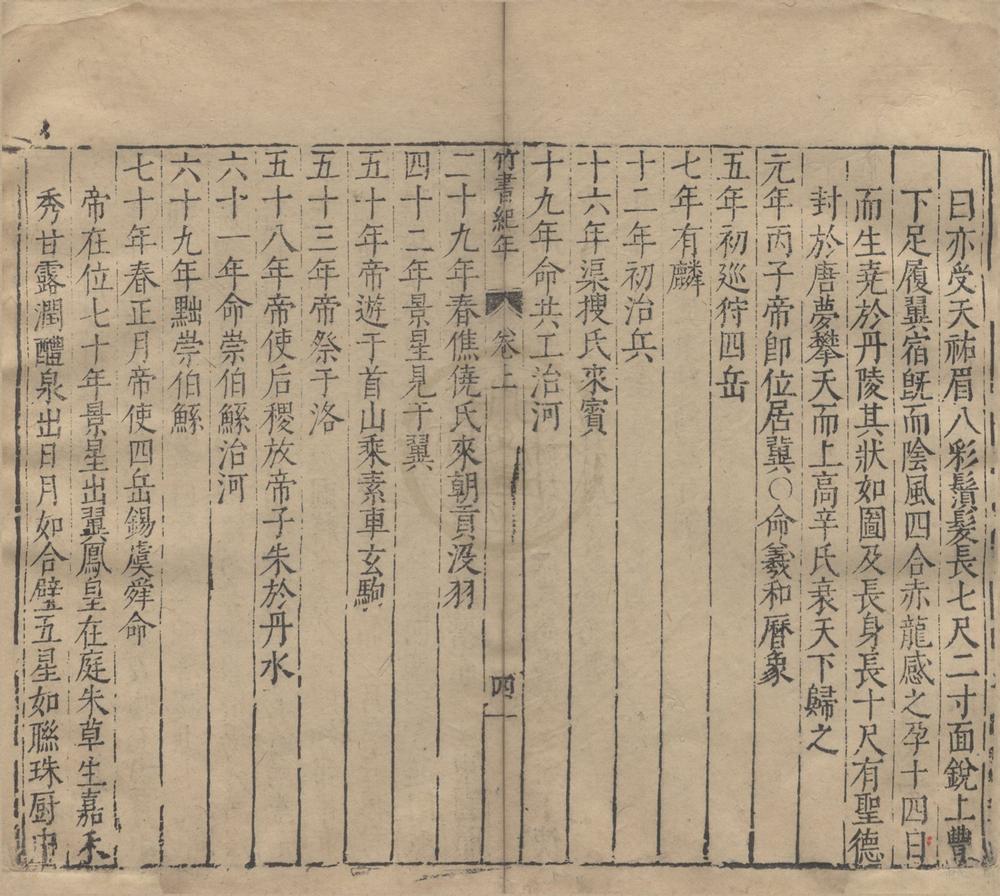 曰亦受天祐眉八彩鬚髮長七尺二寸面銳上豐
下足履翼宿旣而陰風四合赤龍感之孕十四日
而生堯於丹陵其狀如圖及長身長十尺有聖德
封於唐夢攀天而上高辛氏衰天下歸之
元年丙子帝卽位居冀○命羲和曆象
五年初巡狩四岳
七年有麟
十二年初治兵
十六年渠搜氏來賓
十九年命共工治河
竹書紀年 卷上 四
二十九年春僬僥氏來朝貢沒羽
四十二年景星見于翼
五十年帝遊于首山乘素車玄駒
五十三年帝祭于洛
五十八年帝使后稷放帝子朱於丹水
六十一年命崇伯鯀治河
六十九年黜崇伯鯀
七十年春正月帝使四岳錫虞舜命
帝在位七十年景星出翼鳳皇在庭朱草生嘉禾
秀甘露潤醴泉出日月如合璧五星如聯珠厨中